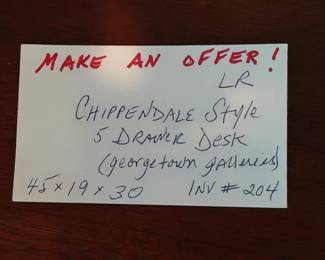 MAKE AN OFFER!
LR
CHIPPENDALE Style
5 DRAWER DESK
(georgetown galleries)
45 x 19 x 30 INV # 204